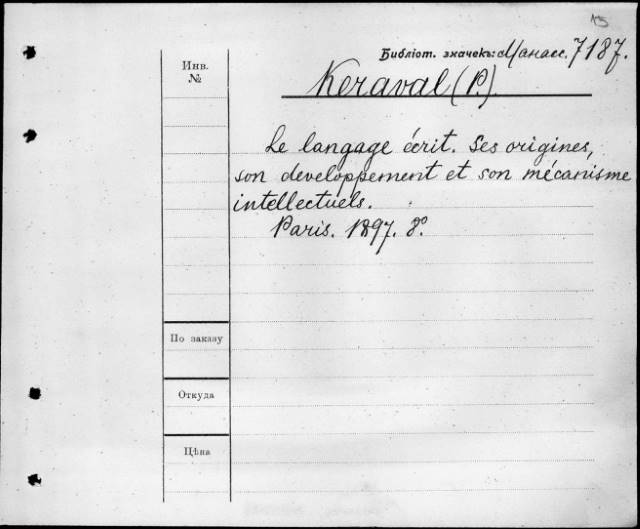 15
Библіот. значекъ: Манасс. 7187.
Инв.
№
Keraval (P.)
Le langage écrit. Ses origines,
son developpement et son mécanisme
intellectuels.
Paris. 1897. 8°.
По заказу
Откуда
Цѣна